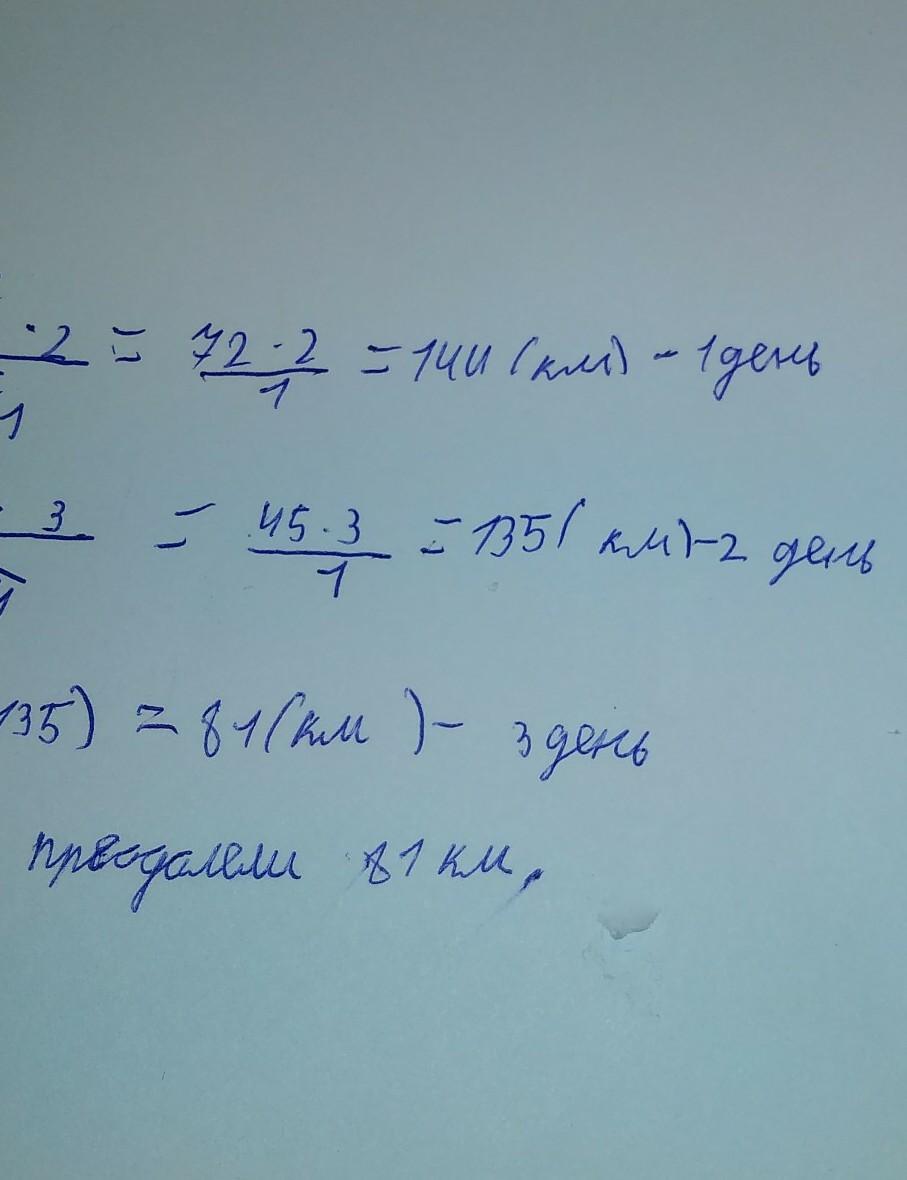 ·2/1 = 72·2/1 = 144 (км) - 1 день
· 3/1 = 45·3/1 = 135 (км) - 2 день
135) = 81 (км) - 3 день
преодолели 81 км.